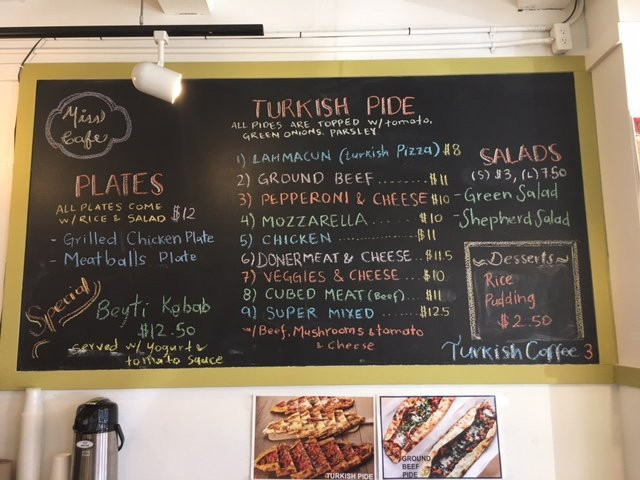 Miss
Cafe
PLATES
ALL PLATES COME
W/RICE & SALAD $12
- Grilled Chicken Plate
- Meatballs Plate
Special
Beyti Kebab
$12.50
served w/ yogurt &
tomato sauce
TURKISH PIDE
ALL PIDES ARE TOPPED W/tomato,
GREEN ONIONS, PARSLEY
1) LAHMACUN (turkish Pizza) $8
2) GROUND BEEF........ $11
3) PEPPERONI & CHEESE $10
4) MOZZARELLA ....... $10
5) CHICKEN ............... $11
6) DONERMEAT & CHEESE... $11.5
7) VEGGIES & CHEESE.... $10
8) CUBED MEAT (Beef)... $11
9) SUPER MIXED........ $12.5
w/Beef, Mushrooms & tomato
& Cheese
SALADS
(S) $3, (L) 7.50
- Green Salad
- Shepherd Salad
Desserts
Rice
Pudding
$2.50
Turkish Coffee 3
TURKISH PIDE
GROUND
BEEF
PIDE